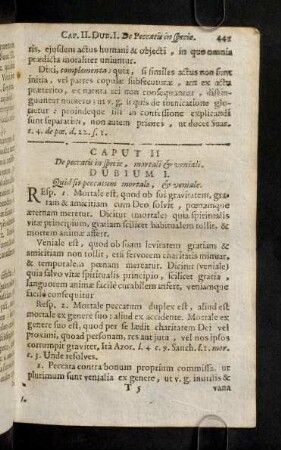 CAP. II. DUB. I. De Peccatis in specie. 441
ris, ejusdem actus humani & objecti, in quo omnia
prædicta moraliter uniuntur.
Dixi, complementa: quia, si similes actus non sunt
initia, vel partes copulæ subsecuturæ, aut ex actu
præterito, ex natura rei non consequantur, distin-
guantur numero: ut v. g. si quis de fornicatione glo-
rietur: proindeque illi in confessione explicandi
sunt separatim, non autem priores, ut docet Suar.
t. 4. de pœ. d. 22. s. 5.
CAPUT II
De peccatis in specie, mortali & veniali.
DUBIUM I.
Quid sit peccatum mortale, & veniale.
Resp. 1. Mortale est, quod ob sui gravitatem, gra-
tiam & amicitiam cum Deo solvit, pœnamque
æternam meretur. Dicitur (mortale) quia spiritualis
vitæ principium, gratiam scilicet habitualem tollit. &
mortem animæ affert.
Veniale est, quod ob suam levitatem gratiam &
amicitiam non tollit, etsi fervorem charitatis minuat,
& temporalem pœnam meretur. Dicitur (veniale)
quia salvo vitæ spiritualis principio, scilicet gratia,
languorem animæ facilè curabilem affert, veniamque
facilè consequitur
Resp. 2. Mortale peccatum duplex est, aliud est
mortale ex genere suo: aliud ex accidente. Mortale ex
genere suo est, quod per se lædit charitatem Dei vel
proximi, quoad personam, res aut jura, vel nos ipsos
corrumpit graviter, Ità Azor. l. 4 c. 9. Sanch. l. 1. mor.
c. 5. Unde resolves.
1. Peccata contra bonum proprium commissa. ut
plurimum sunt venialia ex genere, ut v. g. inutilis &
T 5 vana